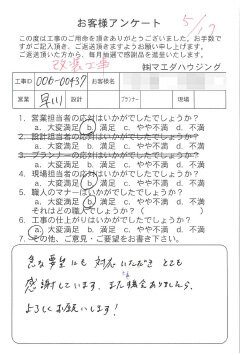 お客様アンケート
5/17
この度は工事のご用命を頂きありがとうございました。お手数で
すがご記入頂き、ご返送頂きますようお願い申し上げます。
ご返送頂いた方から、毎月抽選で感謝品を進呈いたします。
改装工事
㈱マエダハウジング
工事ID 006-00437 お客様名
営業 早川 設計 プランナー 現場
1. 営業担当者の応対はいかがでしたでしょうか?
a. 大変満足 b. 満足 c. やや不満 d. 不満
2. 設計担当者の応対はいかがでしたでしょうか?
a. 大変満足 b. 満足 c. やや不満 d. 不満
3. プランナーの応対はいかがでしたでしょうか?
a. 大変満足 b. 満足 c. やや不満 d. 不満
4. 現場担当者の応対はいかがでしたでしょうか?
a. 大変満足 b. 満足 c. やや不満 d. 不満
5. 職人のマナーはいかがでしたでしょうか?
a. 大変満足 b. 満足 c. やや不満 d. 不満
それはどの職人でしょうか?( )
6. 工事の仕上がりはいかがでしたでしょうか?
a. 大変満足 b. 満足 c. やや不満 d. 不満
7. その他、ご意見・ご要望をお書き下さい。
急な要望にも対応いただき とても
感謝しています。また機会がありましたら、
よろしくお願いします!